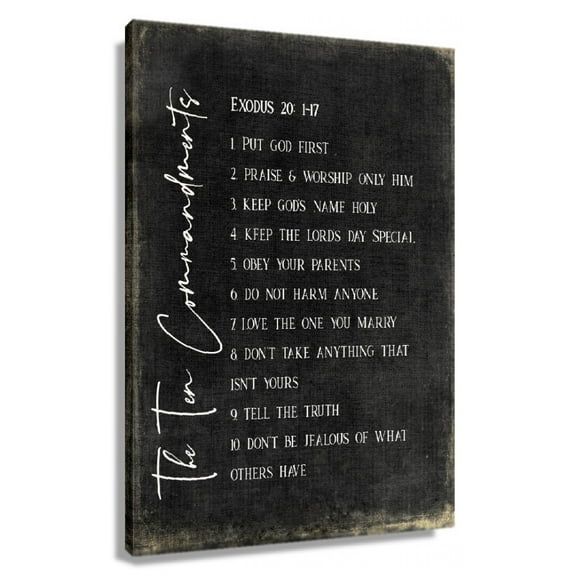 The Ten Commandments
EXODUS 20: 1-17
1. PUT GOD FIRST
2. PRAISE & WORSHIP ONLY HIM
3. KEEP GOD'S NAME HOLY
4. KEEP THE LORDS DAY SPECIAL.
5. OBEY YOUR PARENTS
6. DO NOT HARM ANYONE
7. LOVE THE ONE YOU MARRY
8. DON'T TAKE ANYTHING THAT
ISN'T YOURS
9. TELL THE TRUTH
10. DON'T BE JEALOUS OF WHAT
OTHERS HAVE